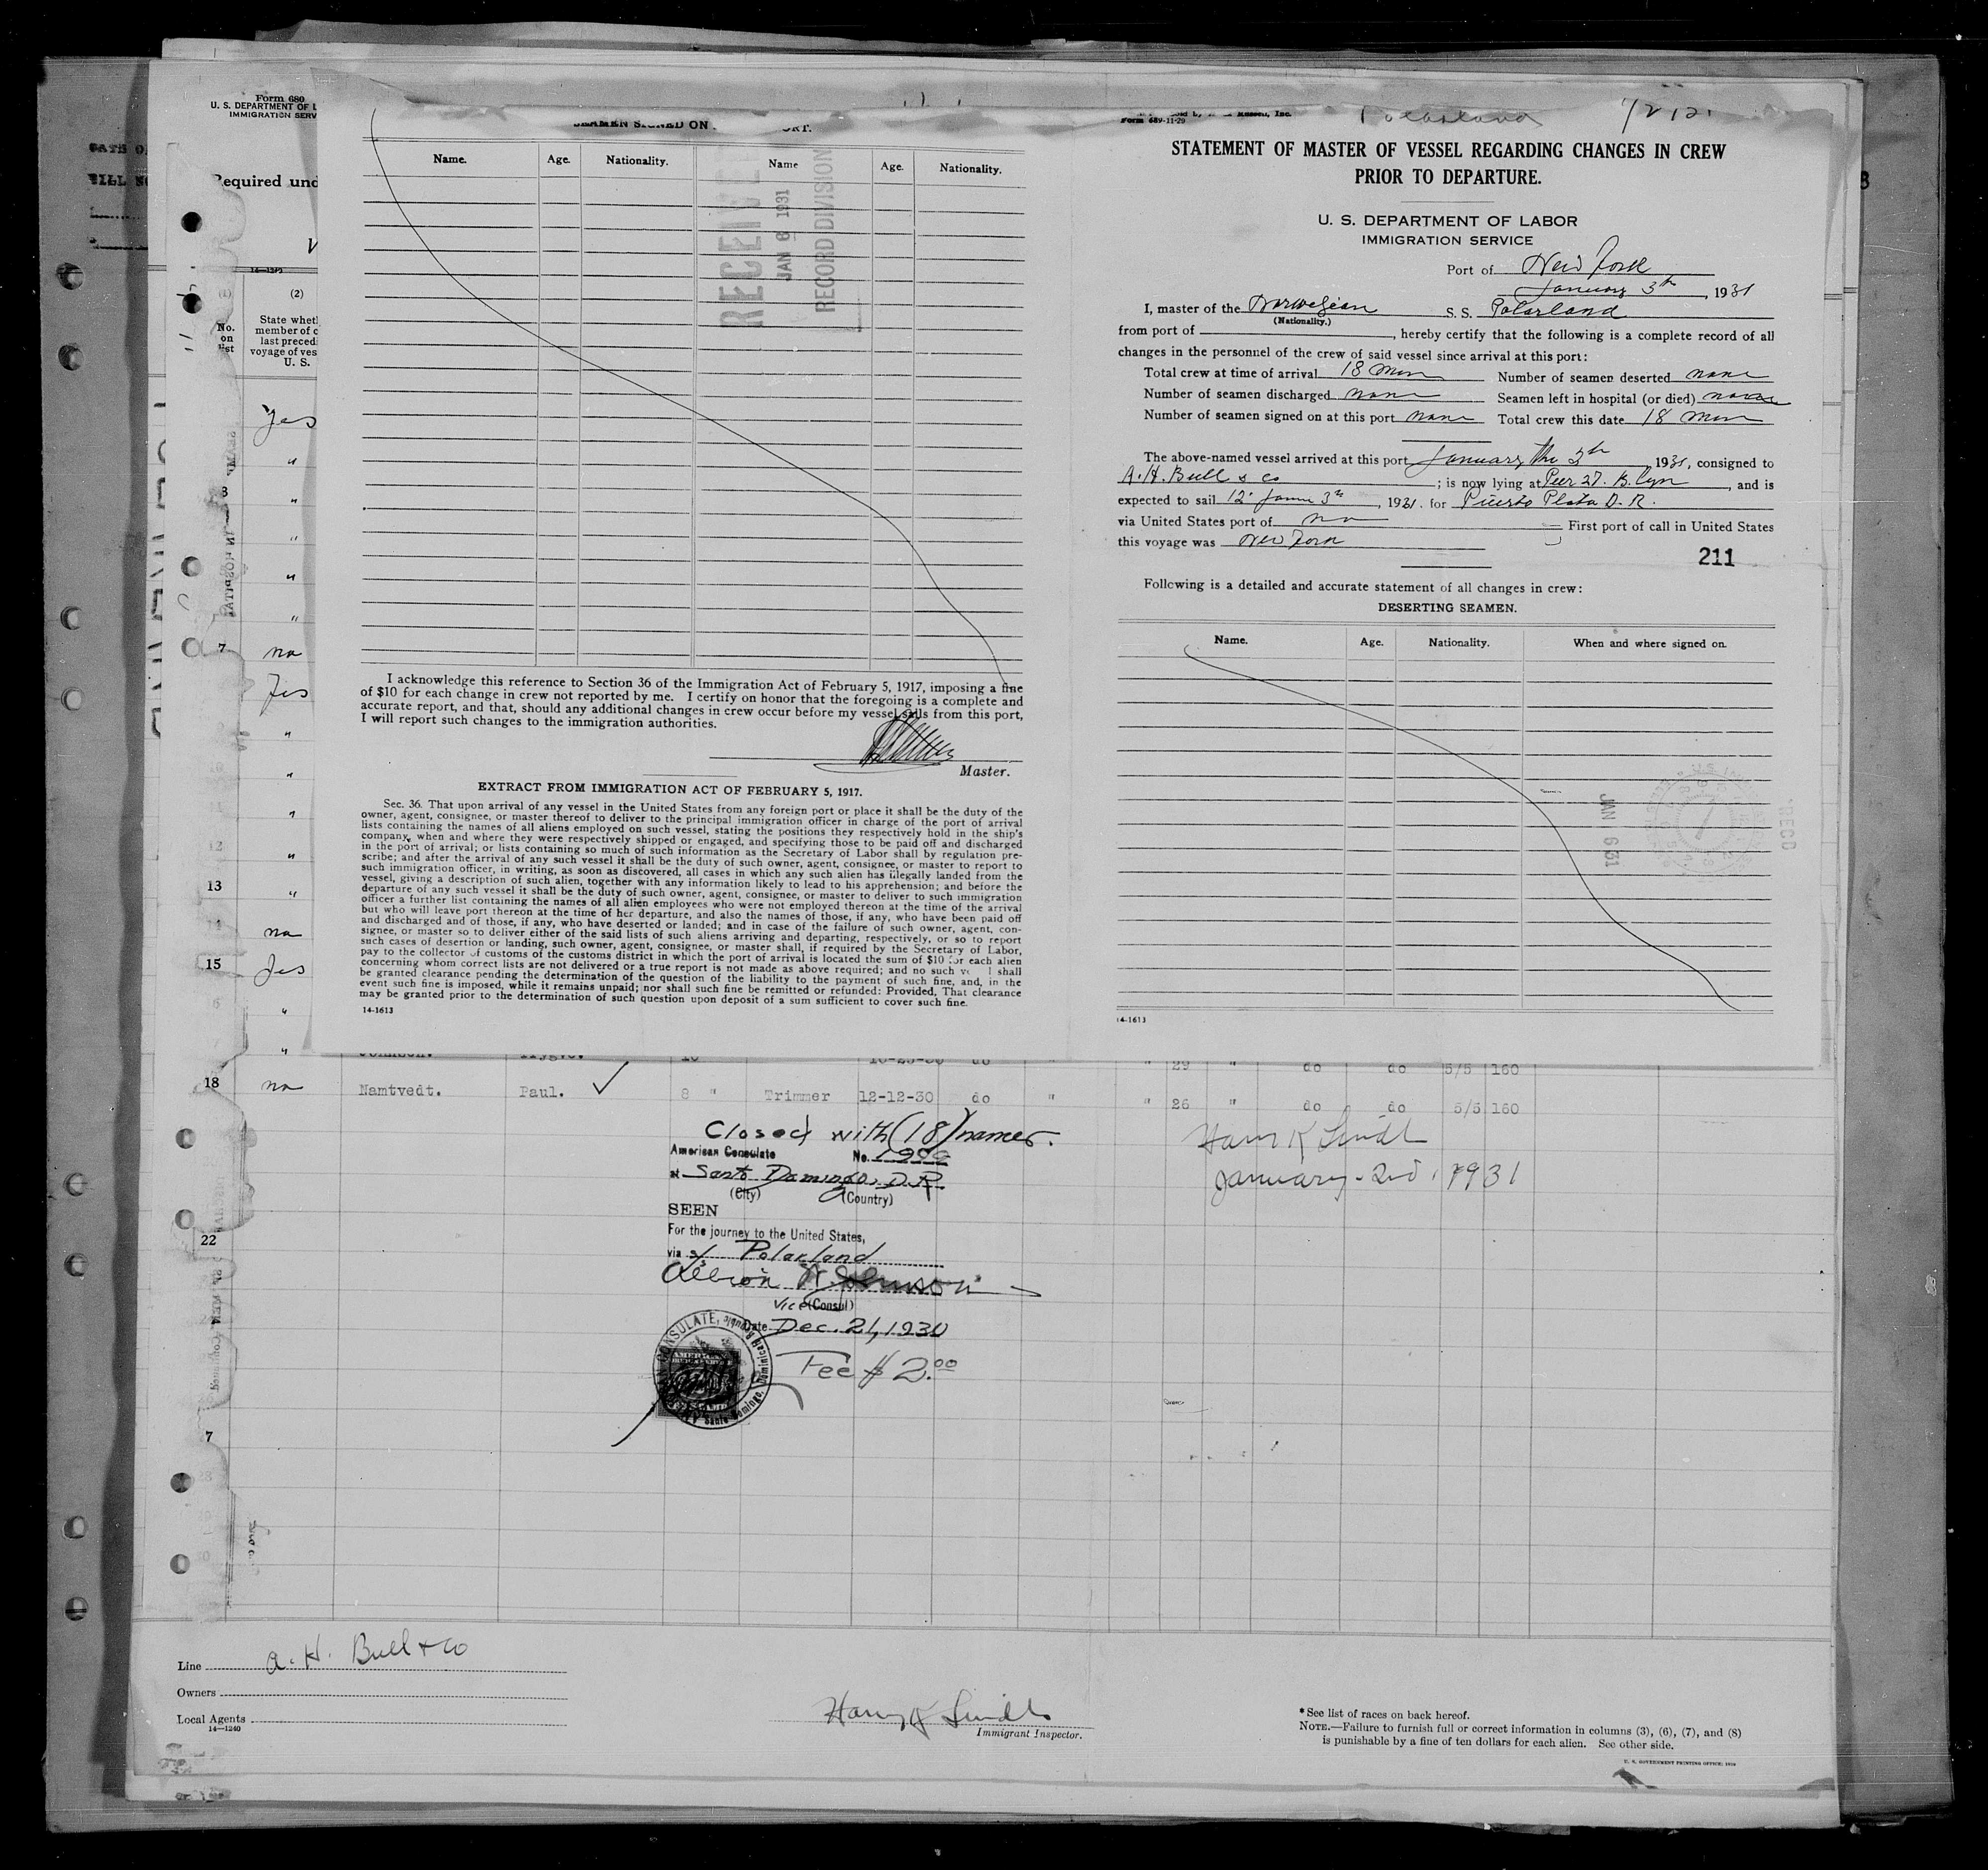 Form 680
U. S. DEPARTMENT OF L
IMMIGRATION SERV
Required und
14-1240
(2)
No. on list
State whet
member of c
last preced
voyage of ves
U. S.
yes
"
"
"
"
"
7 no
Yes
"
"
"
"
13 "
no
15 Yes
"
"
SEAMEN SIGNED ON
Name. Age. Nationality. Name Age. Nationality.
RECEIVED
JAN 6 1931
RECORD DIVISION
I acknowledge this reference to Section 36 of the Immigration Act of February 5, 1917, imposing a fine
of $10 for each change in crew not reported by me. I certify on honor that the foregoing is a complete and
accurate report, and that, should any additional changes in crew occur before my vessel sails from this port,
I will report such changes to the immigration authorities.
Master.
EXTRACT FROM IMMIGRATION ACT OF FEBRUARY 5, 1917.
Sec. 36. That upon arrival of any vessel in the United States from any foreign port or place it shall be the duty of the
owner, agent, consignee, or master thereof to deliver to the principal immigration officer in charge of the port of arrival
lists containing the names of all aliens employed on such vessel, stating the positions they respectively hold in the ship's
company, when and where they were respectively shipped or engaged, and specifying those to be paid off and discharged
in the port of arrival; or lists containing so much of such information as the Secretary of Labor shall by regulation pre-
scribe; and after the arrival of any such vessel it shall be the duty of such owner, agent, consignee, or master to report to
such immigration officer, in writing, as soon as discovered, all cases in which any such alien has illegally landed from the
vessel, giving a description of such alien, together with any information likely to lead to his apprehension; and before the
departure of any such vessel it shall be the duty of such owner, agent, consignee, or master to deliver to such immigration
officer a further list containing the names of all alien employees who were not employed thereon at the time of the arrival
but who will leave port thereon at the time of her departure, and also the names of those, if any, who have been paid off
and discharged and of those, if any, who have deserted or landed; and in case of the failure of such owner, agent, con-
signee, or master so to deliver either of the said lists of such aliens arriving and departing, respectively, or so to report
such cases of desertion or landing, such owner, agent, consignee, or master shall, if required by the Secretary of Labor,
pay to the collector of customs of the customs district in which the port of arrival is located the sum of $10 for each alien
concerning whom correct lists are not delivered or a true report is not made as above required; and no such ve l shall
be granted clearance pending the determination of the question of the liability to the payment of such fine, and, in the
event such fine is imposed, while it remains unpaid; nor shall such fine be remitted or refunded: Provided, That clearance
may be granted prior to the determination of such question upon deposit of a sum sufficient to cover such fine.
14-1613
Form 689-11-29
Polarland
STATEMENT OF MASTER OF VESSEL REGARDING CHANGES IN CREW
PRIOR TO DEPARTURE.
U. S. DEPARTMENT OF LABOR
IMMIGRATION SERVICE
Port of New York
January 3th, 1931
I, master of the Norwegian S. S. Polarland
(Nationality.)
from port of , hereby certify that the following is a complete record of all
changes in the personnel of the crew of said vessel since arrival at this port:
Total crew at time of arrival 18 men Number of seamen deserted none
Number of seamen discharged none Seamen left in hospital (or died) none
Number of seamen signed on at this port none Total crew this date 18 men
The above-named vessel arrived at this port January the 2th 1931, consigned to
A. H. Bull & co ; is now lying at Peer 27. B.lyn, and is
expected to sail 12 3th, 1931. for Puerto Plata D. R.
via United States port of no First port of call in United States
this voyage was New York
211
Following is a detailed and accurate statement of all changes in crew:
DESERTING SEAMEN.
Name. Age. Nationality. When and where signed on.
JAN 6 31
REC'D
14-1613
" " 29 " do do 5/5 160
18 no Namtvedt. Paul. 8 " Trimmer 12-12-30 do " " 26 " do do 5/5 160
Closed with (18) names.
Harry K Lindt
January-2nd, 1931
American Consulate No.
at Santo Domingo, D.R.
(City) (Country)
SEEN
For the journey to the United States,
via s/s Polarland
Albion W. Johnson
Vice (Consul)
Date Dec. 21, 1930
Fee $2.00
22
7
Line A. H. Bull & Co
Owners
Local Agents
14-1240
Harry K Lindt
Immigrant Inspector.
* See list of races on back hereof.
NOTE.—Failure to furnish full or correct information in columns (3), (6), (7), and (8)
is punishable by a fine of ten dollars for each alien. See other side.
U. S. GOVERNMENT PRINTING OFFICE: